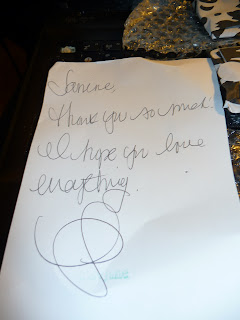 Janine,
Thank you so much!
I hope you love
everything.